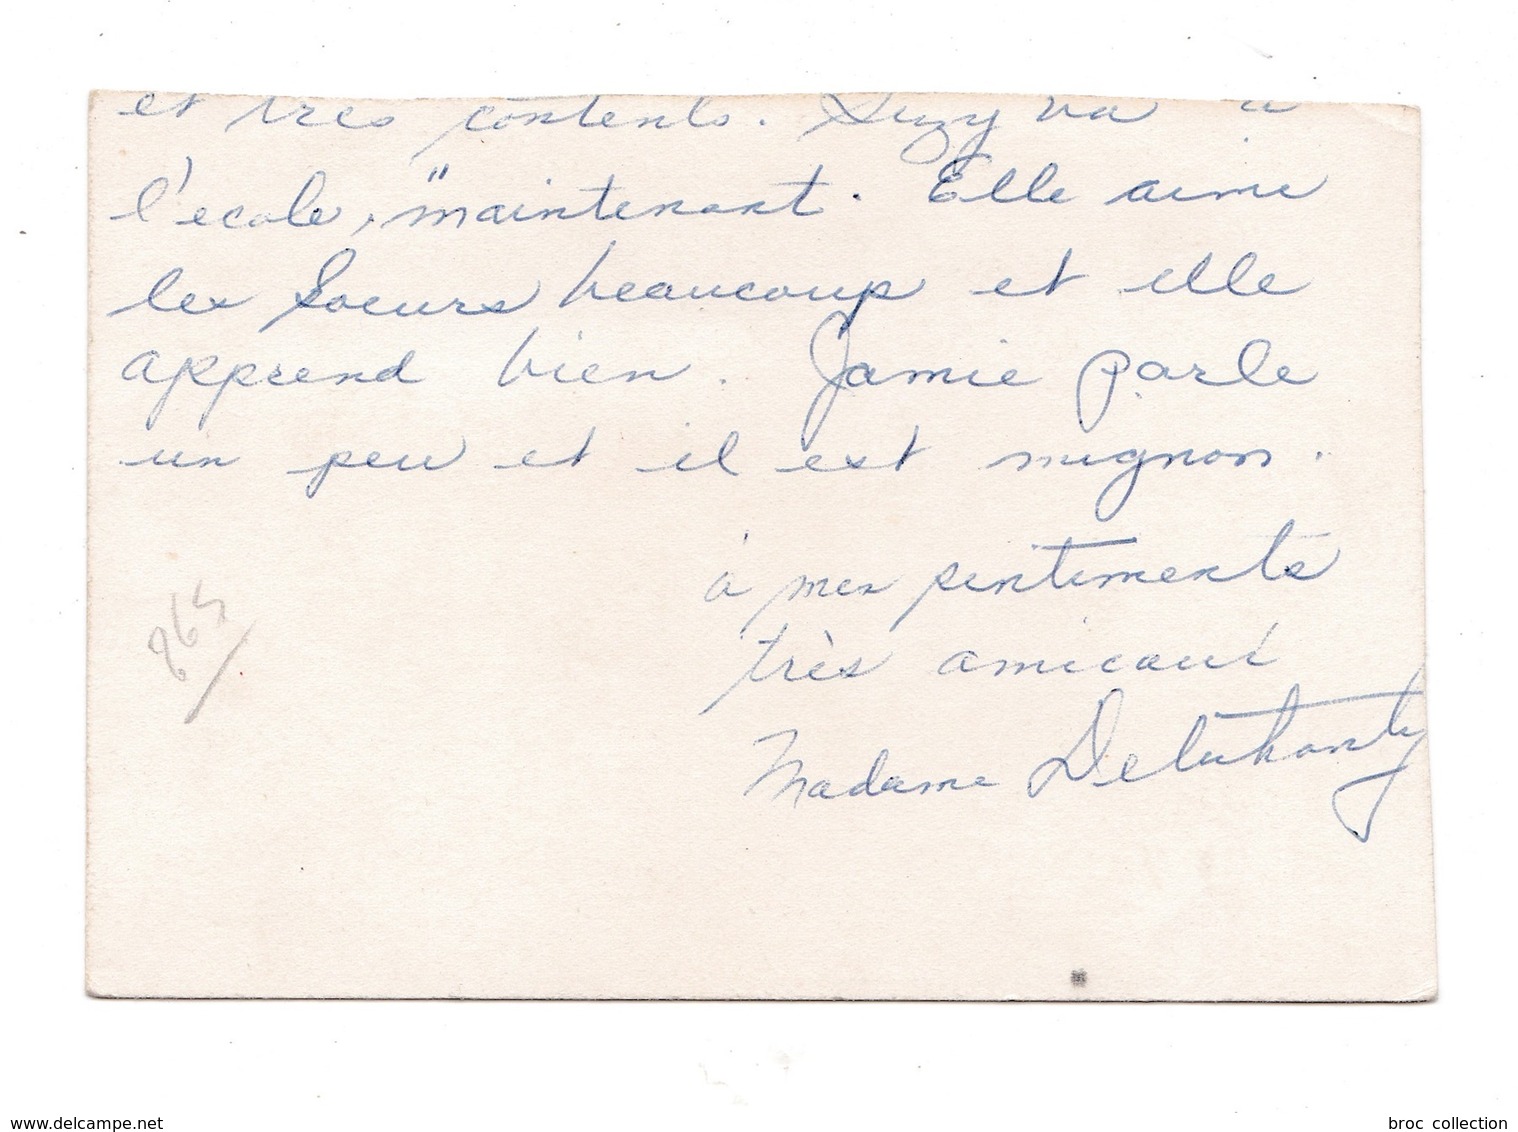 et très contents. Suzy va à
l'école, "maintenant. Elle aime
les Soeurs beaucoup et elle
apprend bien. Jamie parle
un peu et il est mignon.
à mes sentiments
très amicaux
Madame
865
www.delcampe.net
broc collection